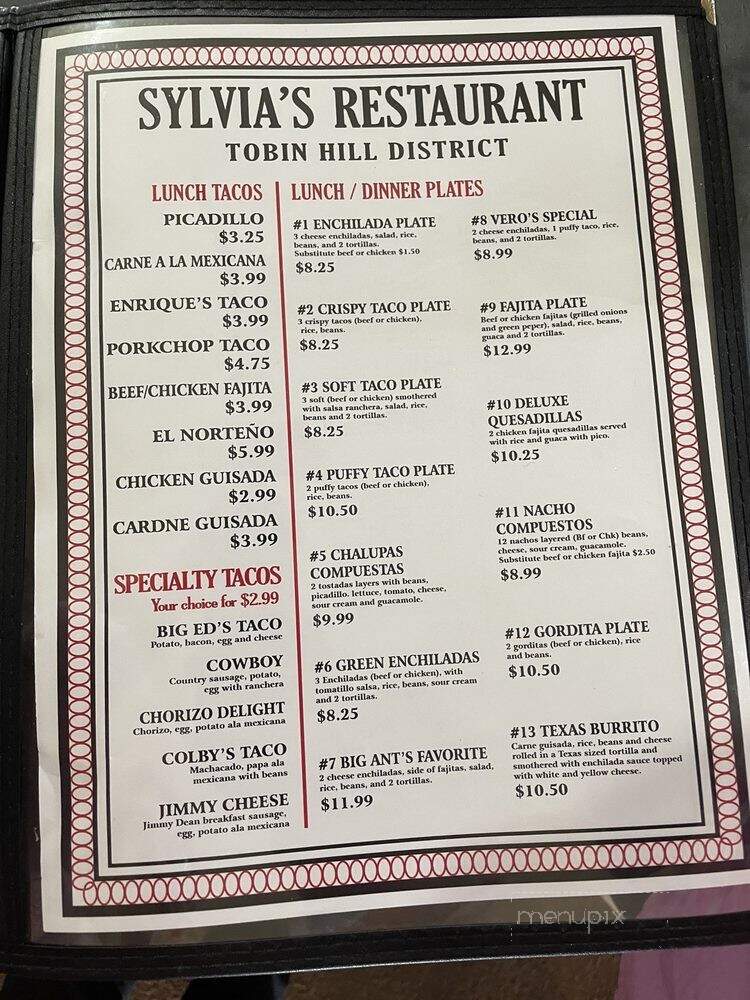 SYLVIA'S RESTAURANT
TOBIN HILL DISTRICT
LUNCH TACOS
PICADILLO
$3.25
CARNE A LA MEXICANA
$3.99
ENRIQUE'S TACO
$3.99
PORKCHOP TACO
$4.75
BEEF/CHICKEN FAJITA
$3.99
EL NORTEÑO
$5.99
CHICKEN GUISADA
$2.99
CARDNE GUISADA
$3.99
SPECIALTY TACOS
Your choice for $2.99
BIG ED'S TACO
Potato, bacon, egg and cheese
COWBOY
Country sausage, potato,
egg with ranchera
CHORIZO DELIGHT
Chorizo, egg, potato ala mexicana
COLBY'S TACO
Machacado, papa ala
mexicana with beans
JIMMY CHEESE
Jimmy Dean breakfast sausage,
egg, potato ala mexicana
LUNCH / DINNER PLATES
#1 ENCHILADA PLATE
3 cheese enchiladas, salad, rice,
beans, and 2 tortillas.
Substitute beef or chicken $1.50
$8.25
#2 CRISPY TACO PLATE
3 crispy tacos (beef or chicken),
rice, beans.
$8.25
#3 SOFT TACO PLATE
3 soft (beef or chicken) smothered
with salsa ranchera, salad, rice,
beans and 2 tortillas.
$8.25
#4 PUFFY TACO PLATE
2 puffy tacos (beef or chicken),
rice, beans.
$10.50
#5 CHALUPAS
COMPUESTAS
2 tostadas layers with beans,
picadillo. lettuce, tomato, cheese,
sour cream and guacamole.
$9.99
#6 GREEN ENCHILADAS
3 Enchiladas (beef or chicken), with
tomatillo salsa, rice, beans, sour cream
and 2 tortillas.
$8.25
#7 BIG ANT'S FAVORITE
2 cheese enchiladas, side of fajitas, salad,
rice, beans, and 2 tortillas.
$11.99
#8 VERO'S SPECIAL
2 cheese enchiladas, 1 puffy taco, rice,
beans, and 2 tortillas.
$8.99
#9 FAJITA PLATE
Beef or chicken fajitas (grilled onions
and green peper), salad, rice, beans,
guaca and 2 tortillas.
$12.99
#10 DELUXE
QUESADILLAS
2 chicken fajita quesadillas served
with rice and guaca with pico.
$10.25
#11 NACHO
COMPUESTOS
12 nachos layered (Bf or Chk) beans,
cheese, sour cream, guacamole.
Substitute beef or chicken fajita $2.50
$8.99
#12 GORDITA PLATE
2 gorditas (beef or chicken), rice
and beans.
$10.50
#13 TEXAS BURRITO
Carne guisada, rice, beans and cheese
rolled in a Texas sized tortilla and
smothered with enchilada sauce topped
with white and yellow cheese.
$10.50
menupix